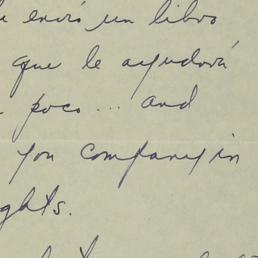 envió un libro
que le ayudará
poco... and
you company in
ghts.